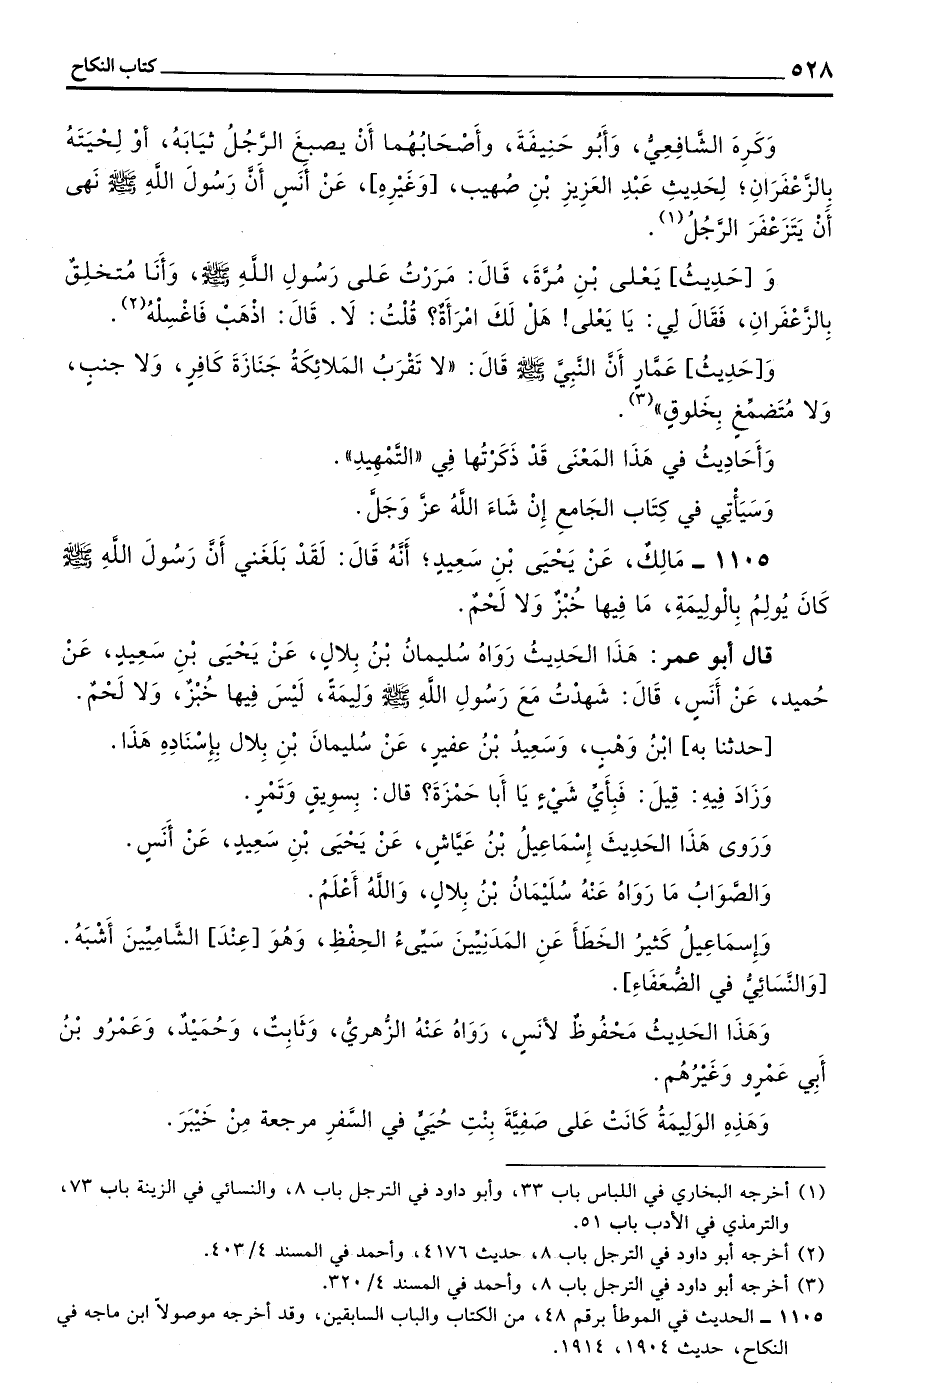 ٥٢٨ كتاب النكاح
وَكَرِهَ الشَّافِعِيُّ، وَأَبُو حَنِيفَةَ، وأَصْحَابُهُما أَنْ يصبغَ الرَّجُلُ ثيَابَهُ، أوْ لِحْيَتَهُ
بِالزَّعْفَرَانِ؛ لِحَدِيثِ عَبْدِ العَزِيزِ بْنِ صُهيب، [وَغَيْرِهِ]، عَنْ أَنَسٍ أَنَّ رَسُولَ اللَّهِ ﷺ نَهى
أَنْ يَتَزَعْفَرَ الرَّجُلُ(١).
وَ [حَدِيثُ] يَعْلى بْنِ مُرَّةَ، قَالَ: مَرَرْتُ عَلى رَسُولِ اللهِ ﷺ، وَأَنَا مُتخلِقٌ
بِالزَّعْفَرانِ، فَقَالَ لِي: يَا يَعْلى! هَلْ لَكَ امْرَأَةٌ؟ قُلْتُ: لَا. قَالَ: اذْهَبْ فَاغْسِلْهُ(٢).
وَ[حَدِيثُ] عَمَّارٍ أَنَّ النَّبِيَّ ﷺ قَالَ: «لا تَقْرَبُ المَلائِكَةُ جَنَازَةَ كَافِرٍ، وَلا جنبٍ،
وَلا مُتَضمِّغٍ بِخَلوقٍ»(٣).
وَأَحَادِيثُ في هَذَا المَعْنَى قَدْ ذَكَرْتُها فِي «التَّمْهِيدِ».
وَسَيَأْتِي في كِتَاب الجَامعِ إنْ شَاءَ اللَّهُ عزَّ وَجَلَّ.
١١٠٥ ـ مَالِكٌ، عَنْ يَحْيَى بْنِ سَعِيدٍ؛ أَنَّهُ قَالَ: لَقَدْ بَلَغَني أَنَّ رَسُولَ اللَّهِ ﷺ
كَانَ يُولِمُ بِالْوِلِيمَةِ، مَا فِيها خُبْزٌ وَلا لَحْمٌ.
قال أبو عمر: هَذَا الحَدِيثُ رَوَاهُ سُليمانُ بْنُ بِلالٍ، عَنْ يَحْيَى بْنِ سَعِيدٍ، عَنْ
حُميد، عَنْ أَنَسٍ، قَالَ: شَهدْتُ مَعَ رَسُولِ اللَّهِ ﷺ وَلِيمَةً، لَيْسَ فِيها خُبْزٌ، وَلا لَحْمٌ.
[حدثنا به] ابْنُ وَهْبٍ، وَسَعِيدُ بْنُ عفيرٍ، عَنْ سُليمانَ بْنِ بِلال بِإِسْنَادِهِ هَذَا.
وَزَادَ فِيهِ: قِيلَ: فَبِأَيِّ شَيْءٍ يَا أَبا حَمْزَةَ؟ قال: بِسويقٍ وَتَمْرٍ.
وَرَوى هَذَا الحَدِيثَ إِسْمَاعِيلُ بْنُ عَيَّاشٍ، عَنْ يَحْيَى بْنِ سَعِيدٍ، عَنْ أَنَسٍ.
وَالصَّوَابُ مَا رَوَاهُ عَنْهُ سُلَيْمَانُ بْنُ بِلالٍ، وَاللَّهُ أَعْلَمُ.
وَإِسمَاعِيلُ كَثيرُ الخَطَأَ عَنِ المَدَنِيِّينَ سَيِّىءُ الحِفْظِ، وَهُوَ [عِنْدَ] الشَّامِيِّينَ أَشْبَهُ.
[وَالنَّسَائِيُّ في الضُّعَفَاءِ].
وَهَذَا الحَدِيثُ مَحْفُوظٌ لأنَسٍ، رَوَاهُ عَنْهُ الزُّهريُّ، وَثَابِتٌ، وَحُمَيْدٌ، وَعَمْرُو بْنُ
أَبِي عَمْرٍو وَغَيْرُهُم.
وَهَذِهِ الوَلِيمَةُ كَانَتْ عَلى صَفِيَّةَ بِنْتِ حُيَيٍّ في السَّفرِ مرجعة مِنْ خَيْبَرَ.
(١) أخرجه البخاري في اللباس باب ٣٣، وأبو داود في الترجل باب ٨، والنسائي في الزينة باب ٧٣،
والترمذي في الأدب باب ٥١.
(٢) أخرجه أبو داود في الترجل باب ٨، حديث ٤١٧٦، وأحمد في المسند ٤/ ٤٠٣.
(٣) أخرجه أبو داود في الترجل باب ٨، وأحمد في المسند ٤/ ٣٢٠.
١١٠٥ ـ الحديث في الموطأ برقم ٤٨، من الكتاب والباب السابقين، وقد أخرجه موصولاً ابن ماجه في
النكاح، حديث ١٩٠٤، ١٩١٤.